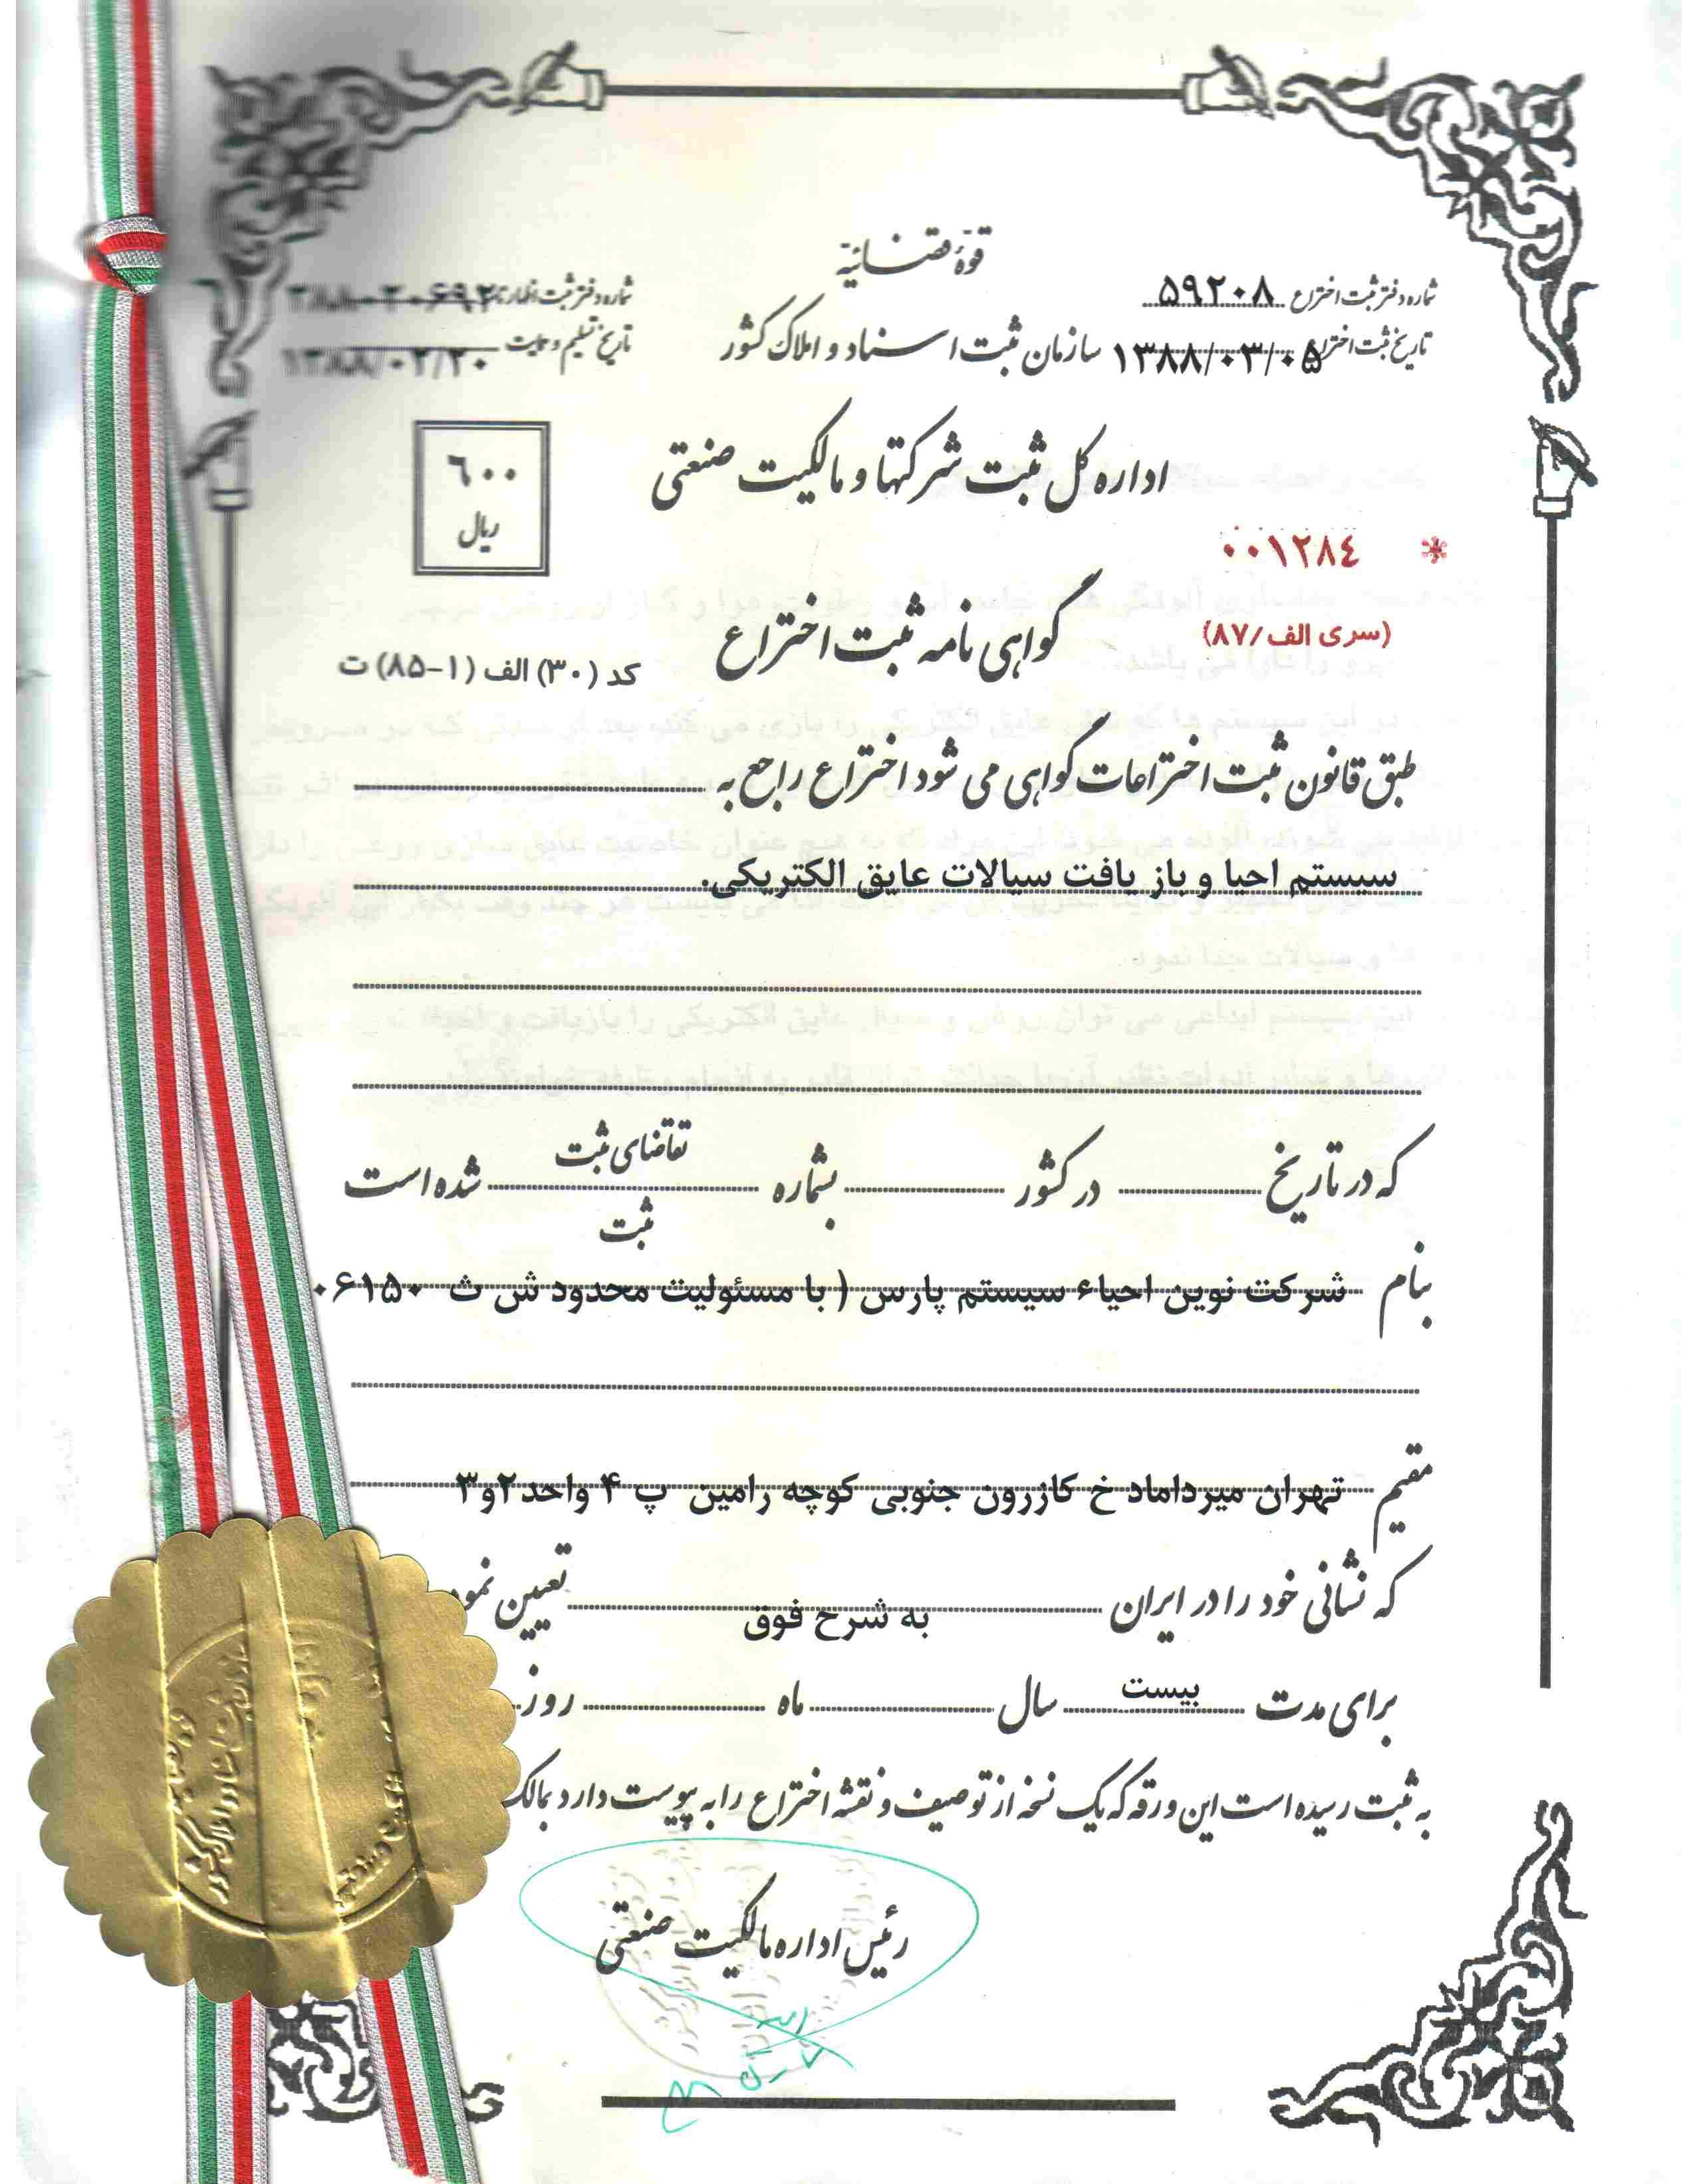 قوۀ قضائیه
شماره دفتر ثبت اختراع ۵۹۲۰۸
شماره دفتر ثبت اظهارنامه ۳۸۸۰۲۰۶۹۲
سازمان ثبت اسناد و املاک کشور
تاریخ ثبت اختراع ۱۳۸۸/۰۳/۰۵
تاریخ تسلیم و حمایت ۱۳۸۸/۰۲/۲۰
اداره کل ثبت شرکتها و مالکیت صنعتی
۶۰۰
ریال
* ۰۰۱۲۸۴
(سری الف/۸۷)
گواهی نامه ثبت اختراع
کد (۳۰) الف (۱-۸۵) ت
طبق قانون ثبت اختراعات گواهی می شود اختراع راجع به
سیستم احیا و باز یافت سیالات عایق الکتریکی.
که در تاریخ در کشور بشماره تقاضای ثبت شده است
ثبت
بنام شرکت نوین احیاء سیستم پارس ( با مسئولیت محدود ش ث ۰۶۱۵۰
مقیم تهران میرداماد خ کازرون جنوبی کوچه رامین پ ۴ واحد ۲و۳
که نشانی خود را در ایران به شرح فوق تعیین نمود
برای مدت بیست سال ماه روز
به ثبت رسیده است این ورقه که یک نسخه از توصیف و نقشه اختراع را به پیوست دارد بمالک
رئیس اداره مالکیت صنعتی